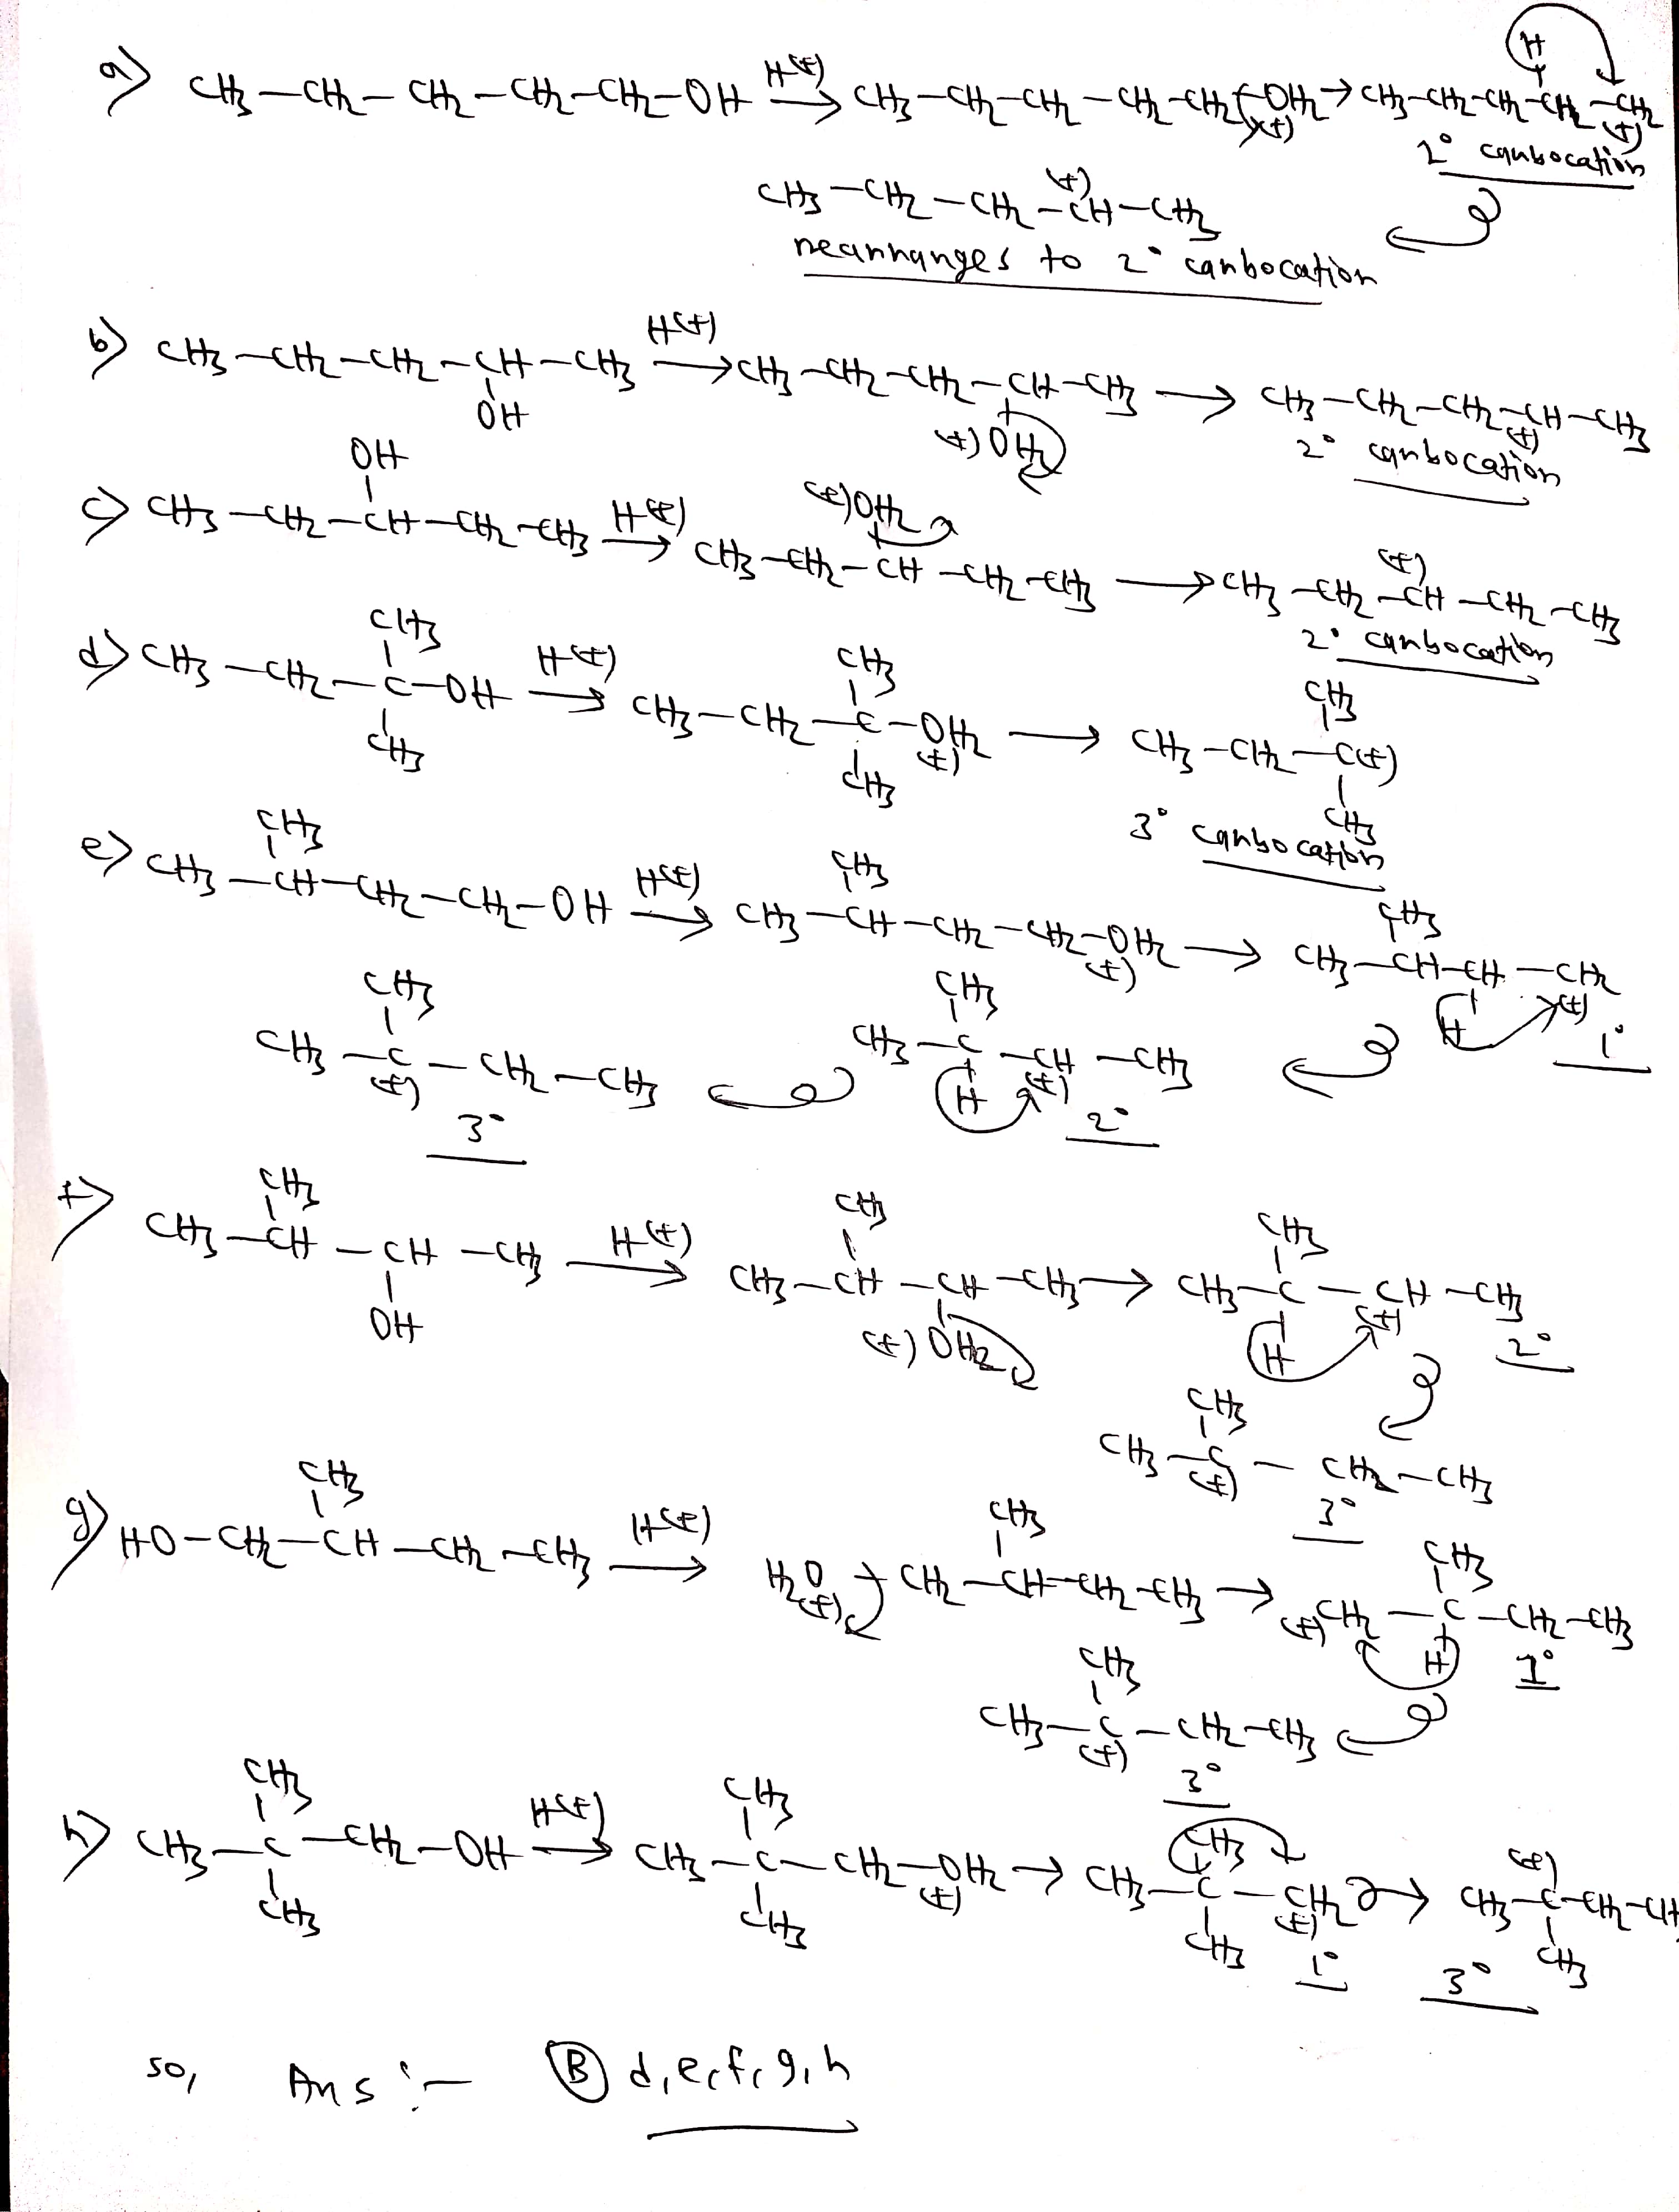 H
a) CH3-CH2-CH2-CH2-CH2-OH H(+) → CH3-CH2-CH2-CH2-CH2-OH2 (+) → CH3-CH2-CH2-CH2-CH2 (+)
1° carbocation
CH3-CH2-CH2-CH(+)-CH3
rearranges to 2° carbocation
b) CH3-CH2-CH2-CH-CH3 H(+) → CH3-CH2-CH2-CH-CH3 → CH3-CH2-CH2-CH-CH3
OH (+)OH2 (+)
2° carbocation
OH (+)OH2 (+)
c) CH3-CH2-CH-CH2-CH3 H(+) → CH3-CH2-CH-CH2-CH3 → CH3-CH2-CH-CH2-CH3
2° carbocation
CH3 CH3 CH3
d) CH3-CH2-C-OH H(+) → CH3-CH2-C-OH2 (+) → CH3-CH2-C(+)
CH3 CH3 CH3
3° carbocation
CH3 CH3 CH3
e) CH3-CH-CH2-CH2-OH H(+) → CH3-CH-CH2-CH2-OH2 (+) → CH3-CH-CH-CH2 (+)
H 1°
CH3 CH3
CH3-C-CH2-CH3 CH3-C-CH-CH3
(+) H (+)
3° 2°
CH3 CH3 CH3
f) CH3-CH-CH-CH3 H(+) → CH3-CH-CH-CH3 → CH3-C-CH-CH3
OH (+)OH2 H (+) 2°
CH3
CH3-C-CH2-CH3
(+) 3°
CH3 CH3 CH3
g) HO-CH2-CH-CH2-CH3 H(+) → H2O(+)-CH2-CH-CH2-CH3 → (+)CH2-C-CH2-CH3
H 1°
CH3
CH3-C-CH2-CH3
(+) 3°
CH3 CH3 CH3 (+)
h) CH3-C-CH2-OH H(+) → CH3-C-CH2-OH2 (+) → CH3-C-CH2 (+) → CH3-C-CH2-CH
CH3 CH3 CH3 CH3
1° 3°
so, Ans :- B d,e,f,g,h